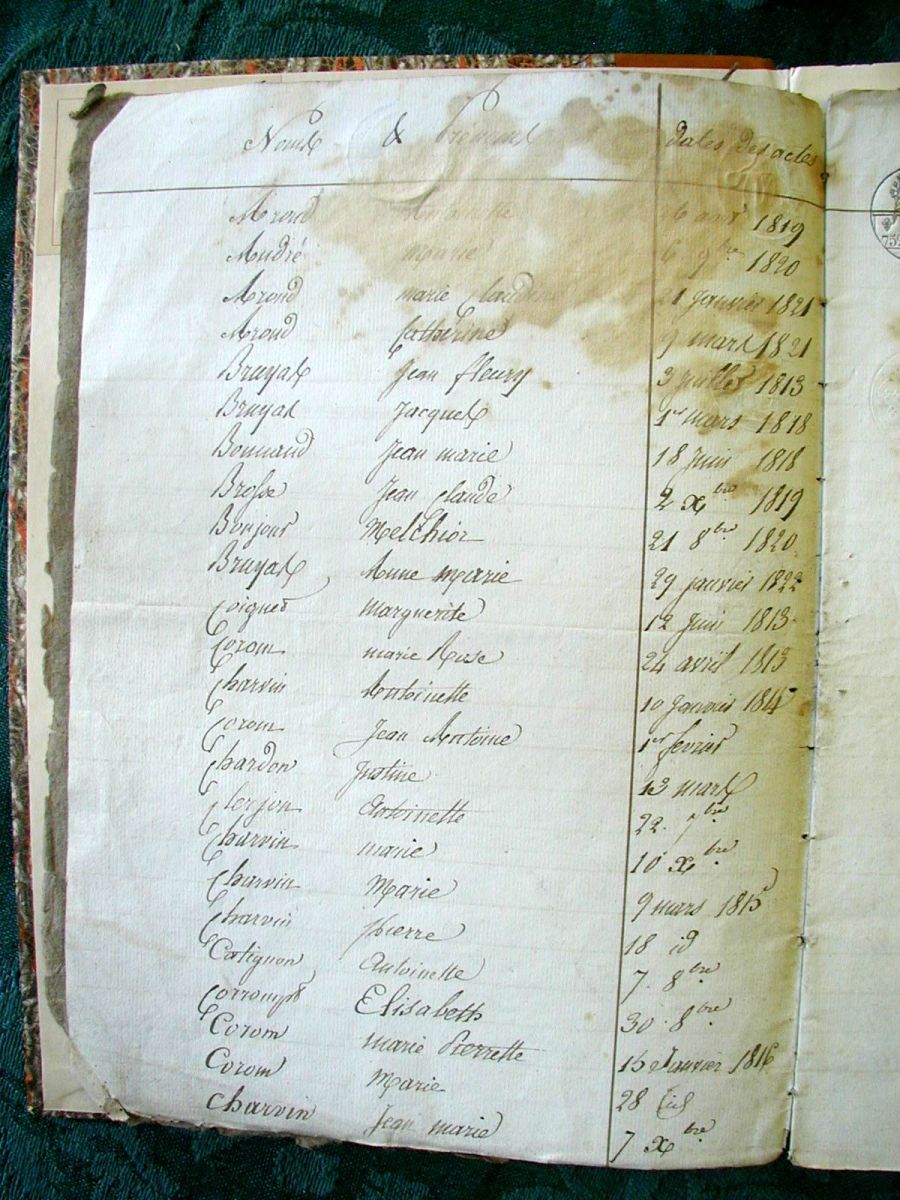 Noms & Prénoms dates des actes
Mrond Antoinette 6 avr 1819
André Marie 6 9bre 1820
Mrond marie Claudine 21 Janvier 1821
Mrond Catherine 9 mars 1821
Bruyas Jean fleury 3 Juillet 1813
Bruyas Jacques 1er mars 1818
Bonnand Jean marie 18 Juin 1818
Brosse Jean Claude 2 Xbre 1819
Bonjour Melchior 21 8bre 1820
Bruyas Anne Marie 29 janvier 1822
Coignet Marguerite 12 Juin 1813
Corom marie Rose 24 avril 1813
Charvin Antoinette 10 Janvier 1814
Corom Jean Antoine 1er fevrier
Chardon Justine 13 mars
Clerjon Antoinette 22 7bre
Charvin marie 10 Xbre
Charvin Marie 9 mars 1815
Charvin pierre 18 id
Catignon Antoinette 7 8bre
Corrompt Elisabeth 30 8bre
Corom marie Pierrette 15 Janvier 1816
Corom Marie 28
Charvin Jean marie 7 Xbre